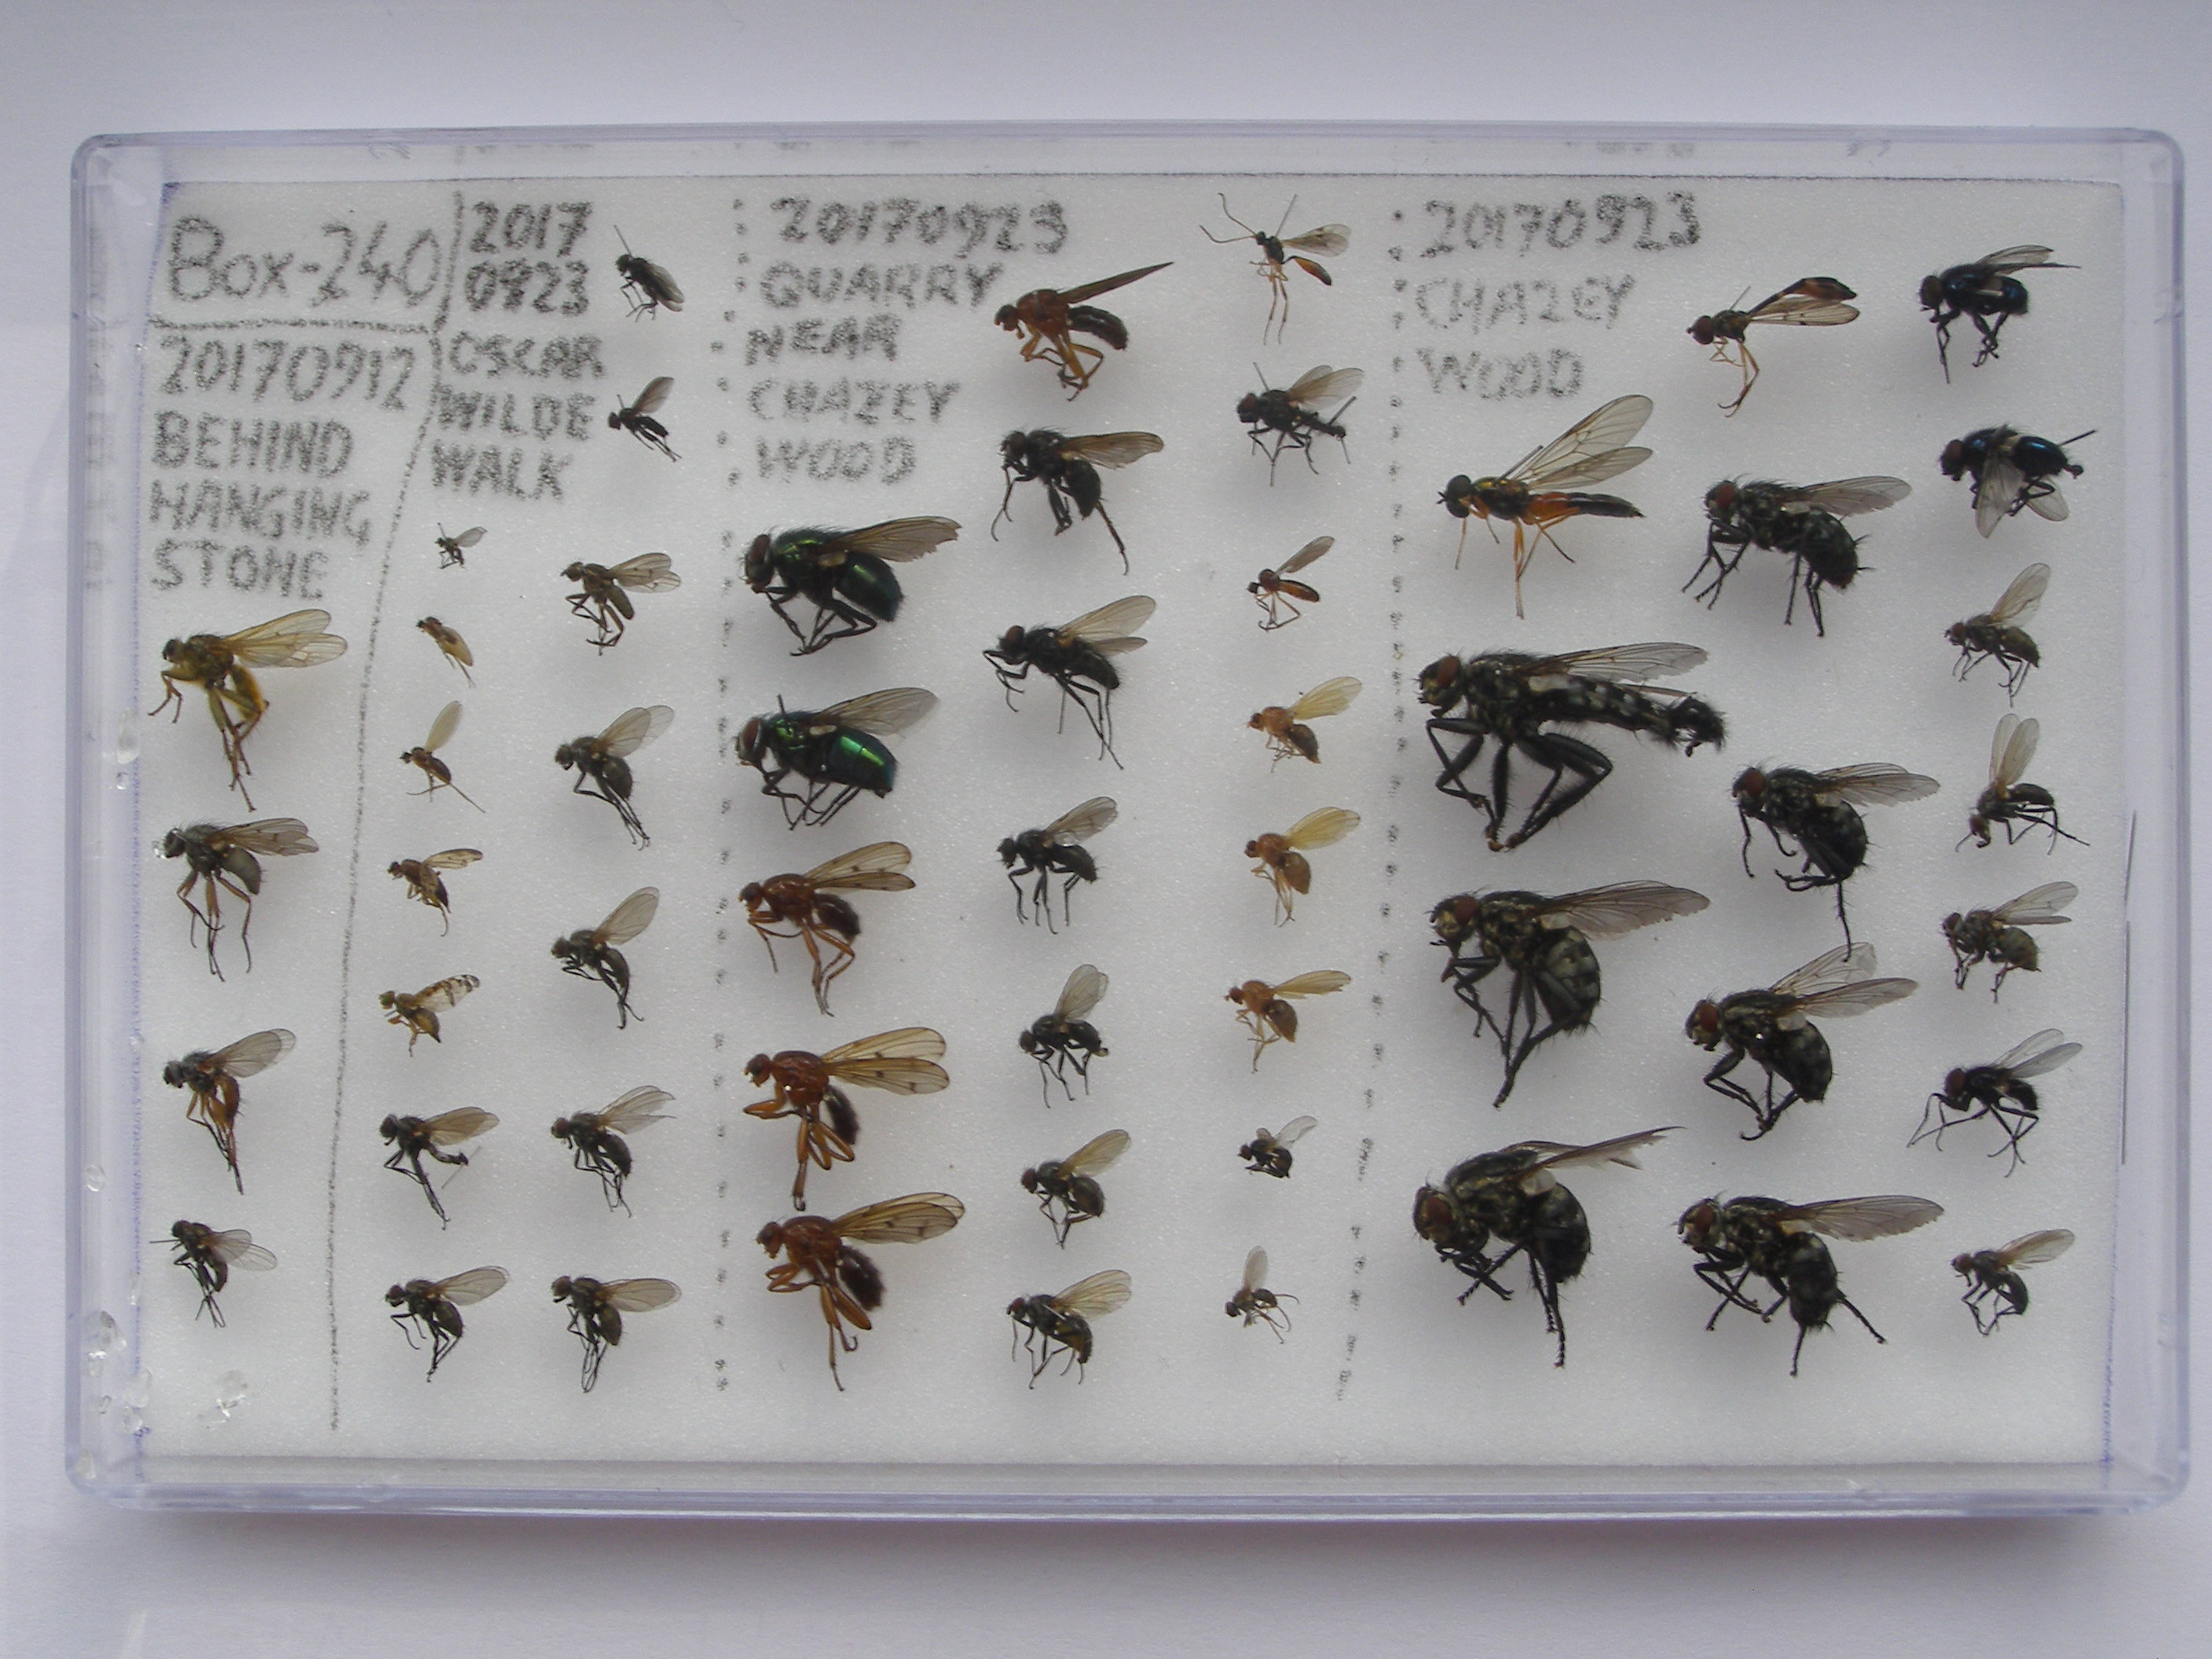 Box-240
20170912
BEHIND
HANGING
STONE
2017
0923
OSCAR
WILDE
WALK
20170923
QUARRY
NEAR
CHAZEY
WOOD
20170923
CHAZEY
WOOD